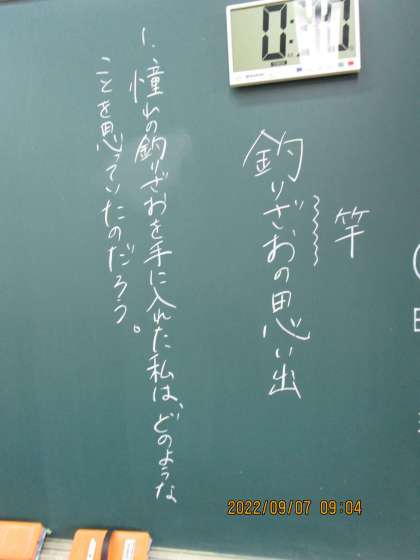 竿
釣りざおの思い出
1、憧れの釣りざおを手に入れた私は、どのような
ことを思っていたのだろう。
2022/09/07 09:04